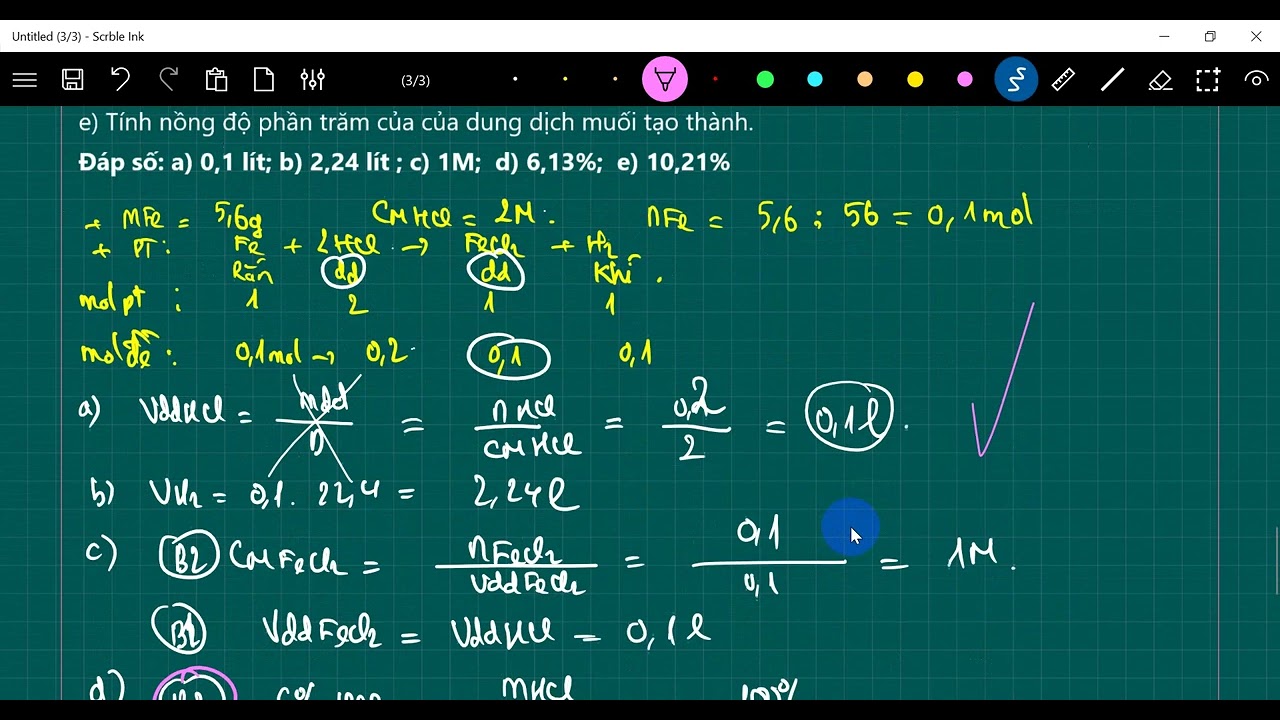 Untitled (3/3) - Scrble Ink
(3/3)
e) Tính nồng độ phần trăm của của dung dịch muối tạo thành.
Đáp số: a) 0,1 lít; b) 2,24 lít ; c) 1M; d) 6,13%; e) 10,21%
+ mFe = 5,6g CM HCl = 2M. nFe = 5,6 : 56 = 0,1 mol
+ PT: Fe + 2HCl → FeCl2 + H2
Rắn dd dd Khí.
mol pt : 1 2 1 1
mol đề: 0,1mol → 0,2 0,1 0,1
a) VddHCl = mdd / D = nHCl / CM HCl = 0,2 / 2 = 0,1 l.
b) VH2 = 0,1. 22,4 = 2,24 l
c) B2 CM FeCl2 = nFeCl2 / VddFeCl2 = 0,1 / 0,1 = 1M.
B1 VddFeCl2 = VddHCl = 0,1 l
d) mHCl